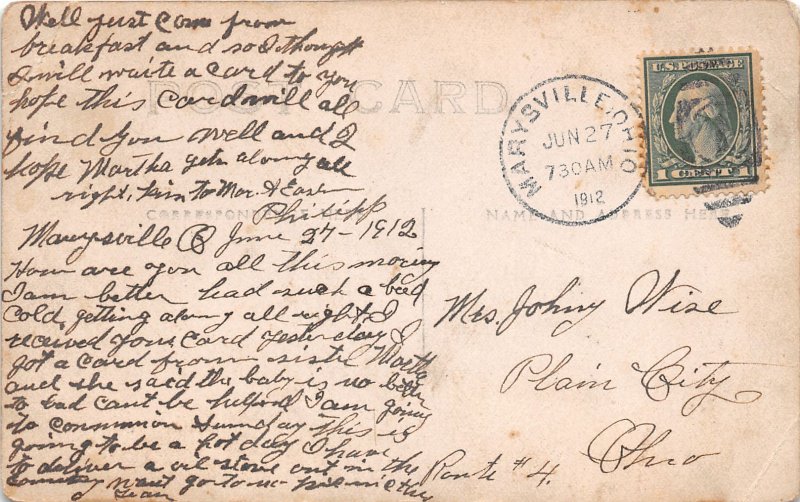 Well just com from
breakfast and so I thought
I will write a card to you
hope this card will all
find you well and I
hope Martha gets along all
right, to Mar.
Philipp
POST CARD
CORRESPONDENCE
NAME AND ADDRESS HERE
MARYSVILLE, OHIO
JUN 27
730 AM
1912
U.S. POSTAGE
1 CENT 1
Marysville O June 27-1912
How are you all this morning
I am better had such a bad
cold, getting along all right, I
received your card yesterday I
got a card from sister Martha
and she said the baby is no better
to bad cant be helped I am going
to communion Sunday this is
going to be a hot day I have
to deliver a oil stove out in the
country
Mrs, Johny Wise
Plain City
Ohio
Route #4.